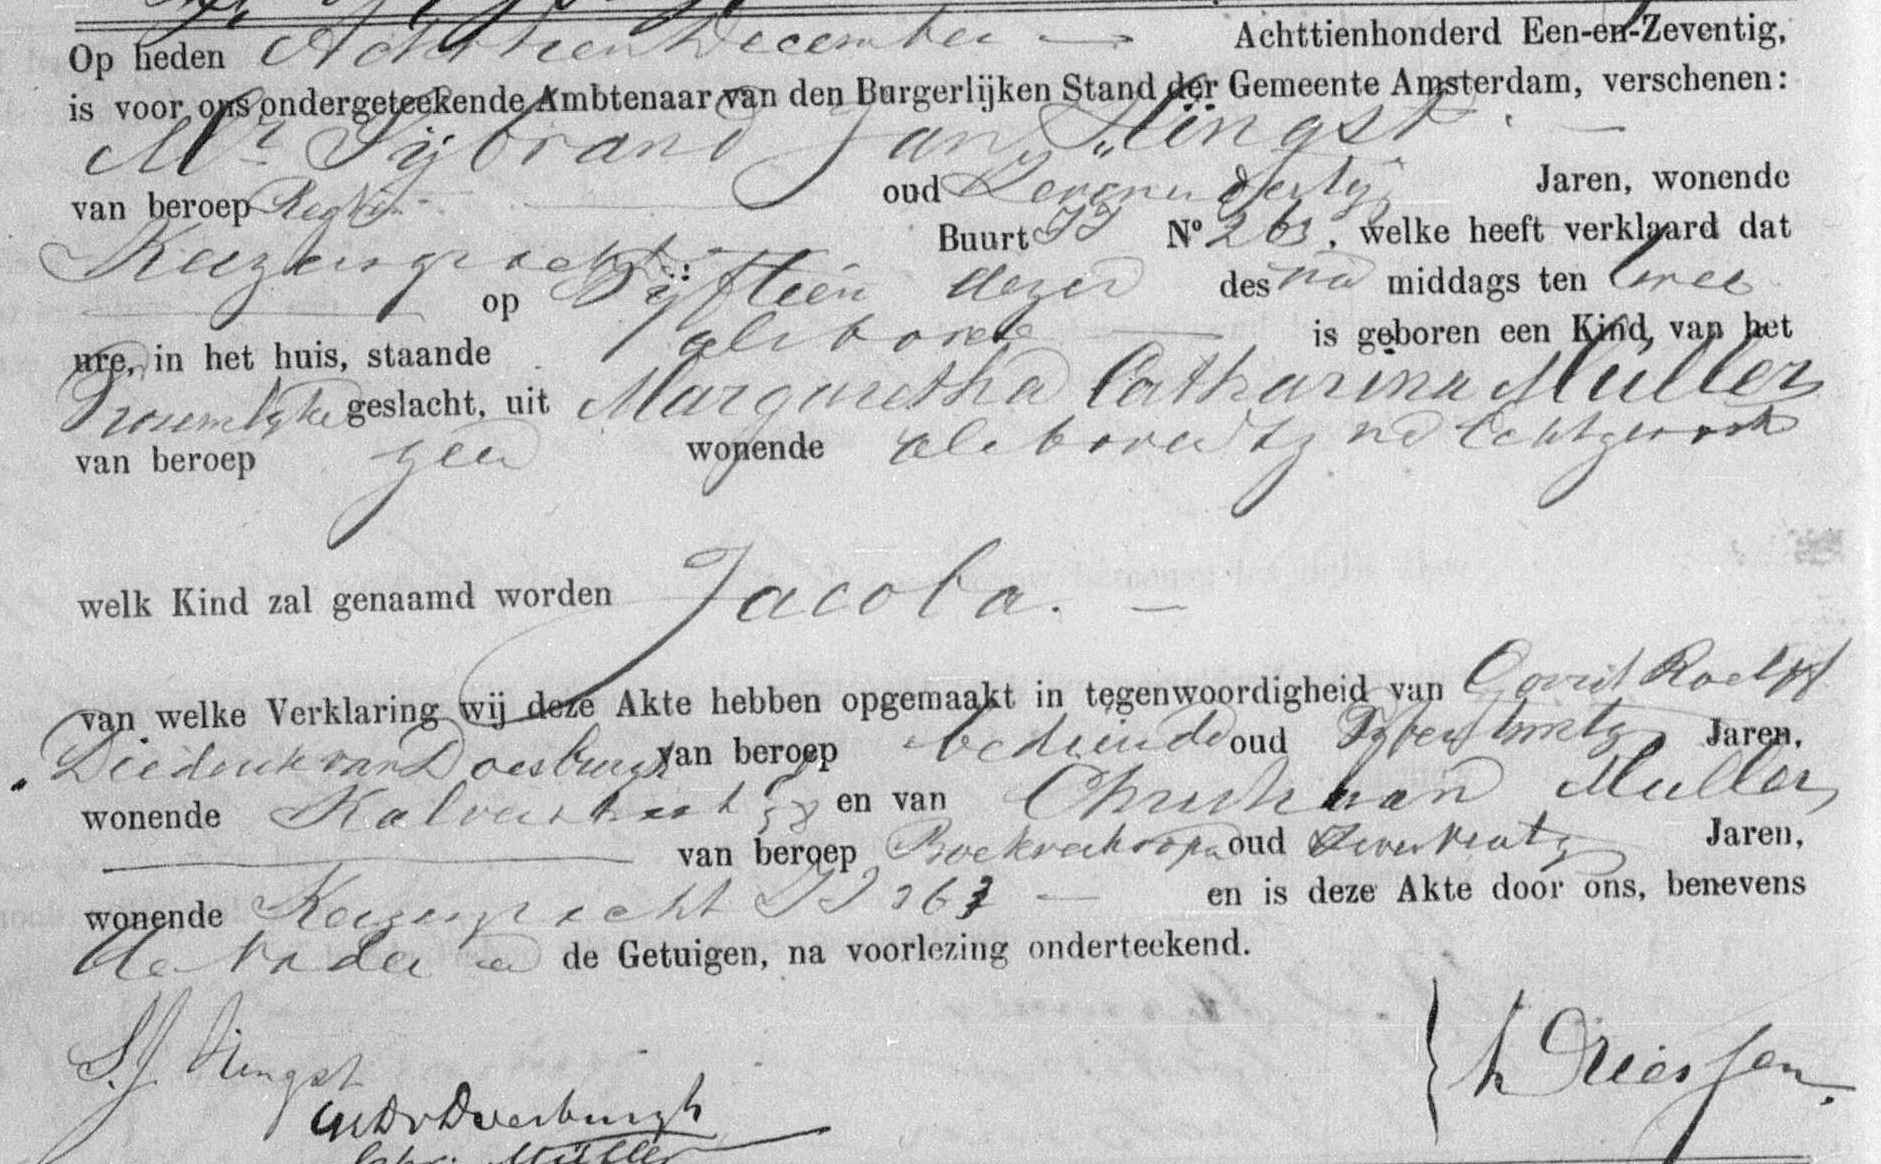 Op heden Achttien December — Achttienhonderd Een-en-Zeventig,
is voor ons ondergeteekende Ambtenaar van den Burgerlijken Stand der Gemeente Amsterdam, verschenen:
Mr. Sijbrand Jan Hingst. —
van beroep Regter oud Zevenendertig Jaren, wonende
Keizersgracht Buurt JJ No 263, welke heeft verklaard dat
op Vijftien dezer des na middags ten twee
ure, in het huis, staande alsboven — is geboren een Kind, van het
Vrouwelijke geslacht, uit Margaretha Catharina Müller,
van beroep geen wonende alsboven zijne Echtgenoot
welk Kind zal genaamd worden Jacoba. —
van welke Verklaring wij deze Akte hebben opgemaakt in tegenwoordigheid van Govert Roeloff
Diederik van Doesburgh van beroep bediende oud Jaren,
wonende Kalverstraat en van Christiaan Muller,
van beroep Boekverkooper oud Jaren,
wonende Keizersgracht JJ 263 — en is deze Akte door ons, benevens
de vader en de Getuigen, na voorlezing onderteekend.
S.J. Hingst
GRDvDoesburgh
Chr. Müller
Driessen.